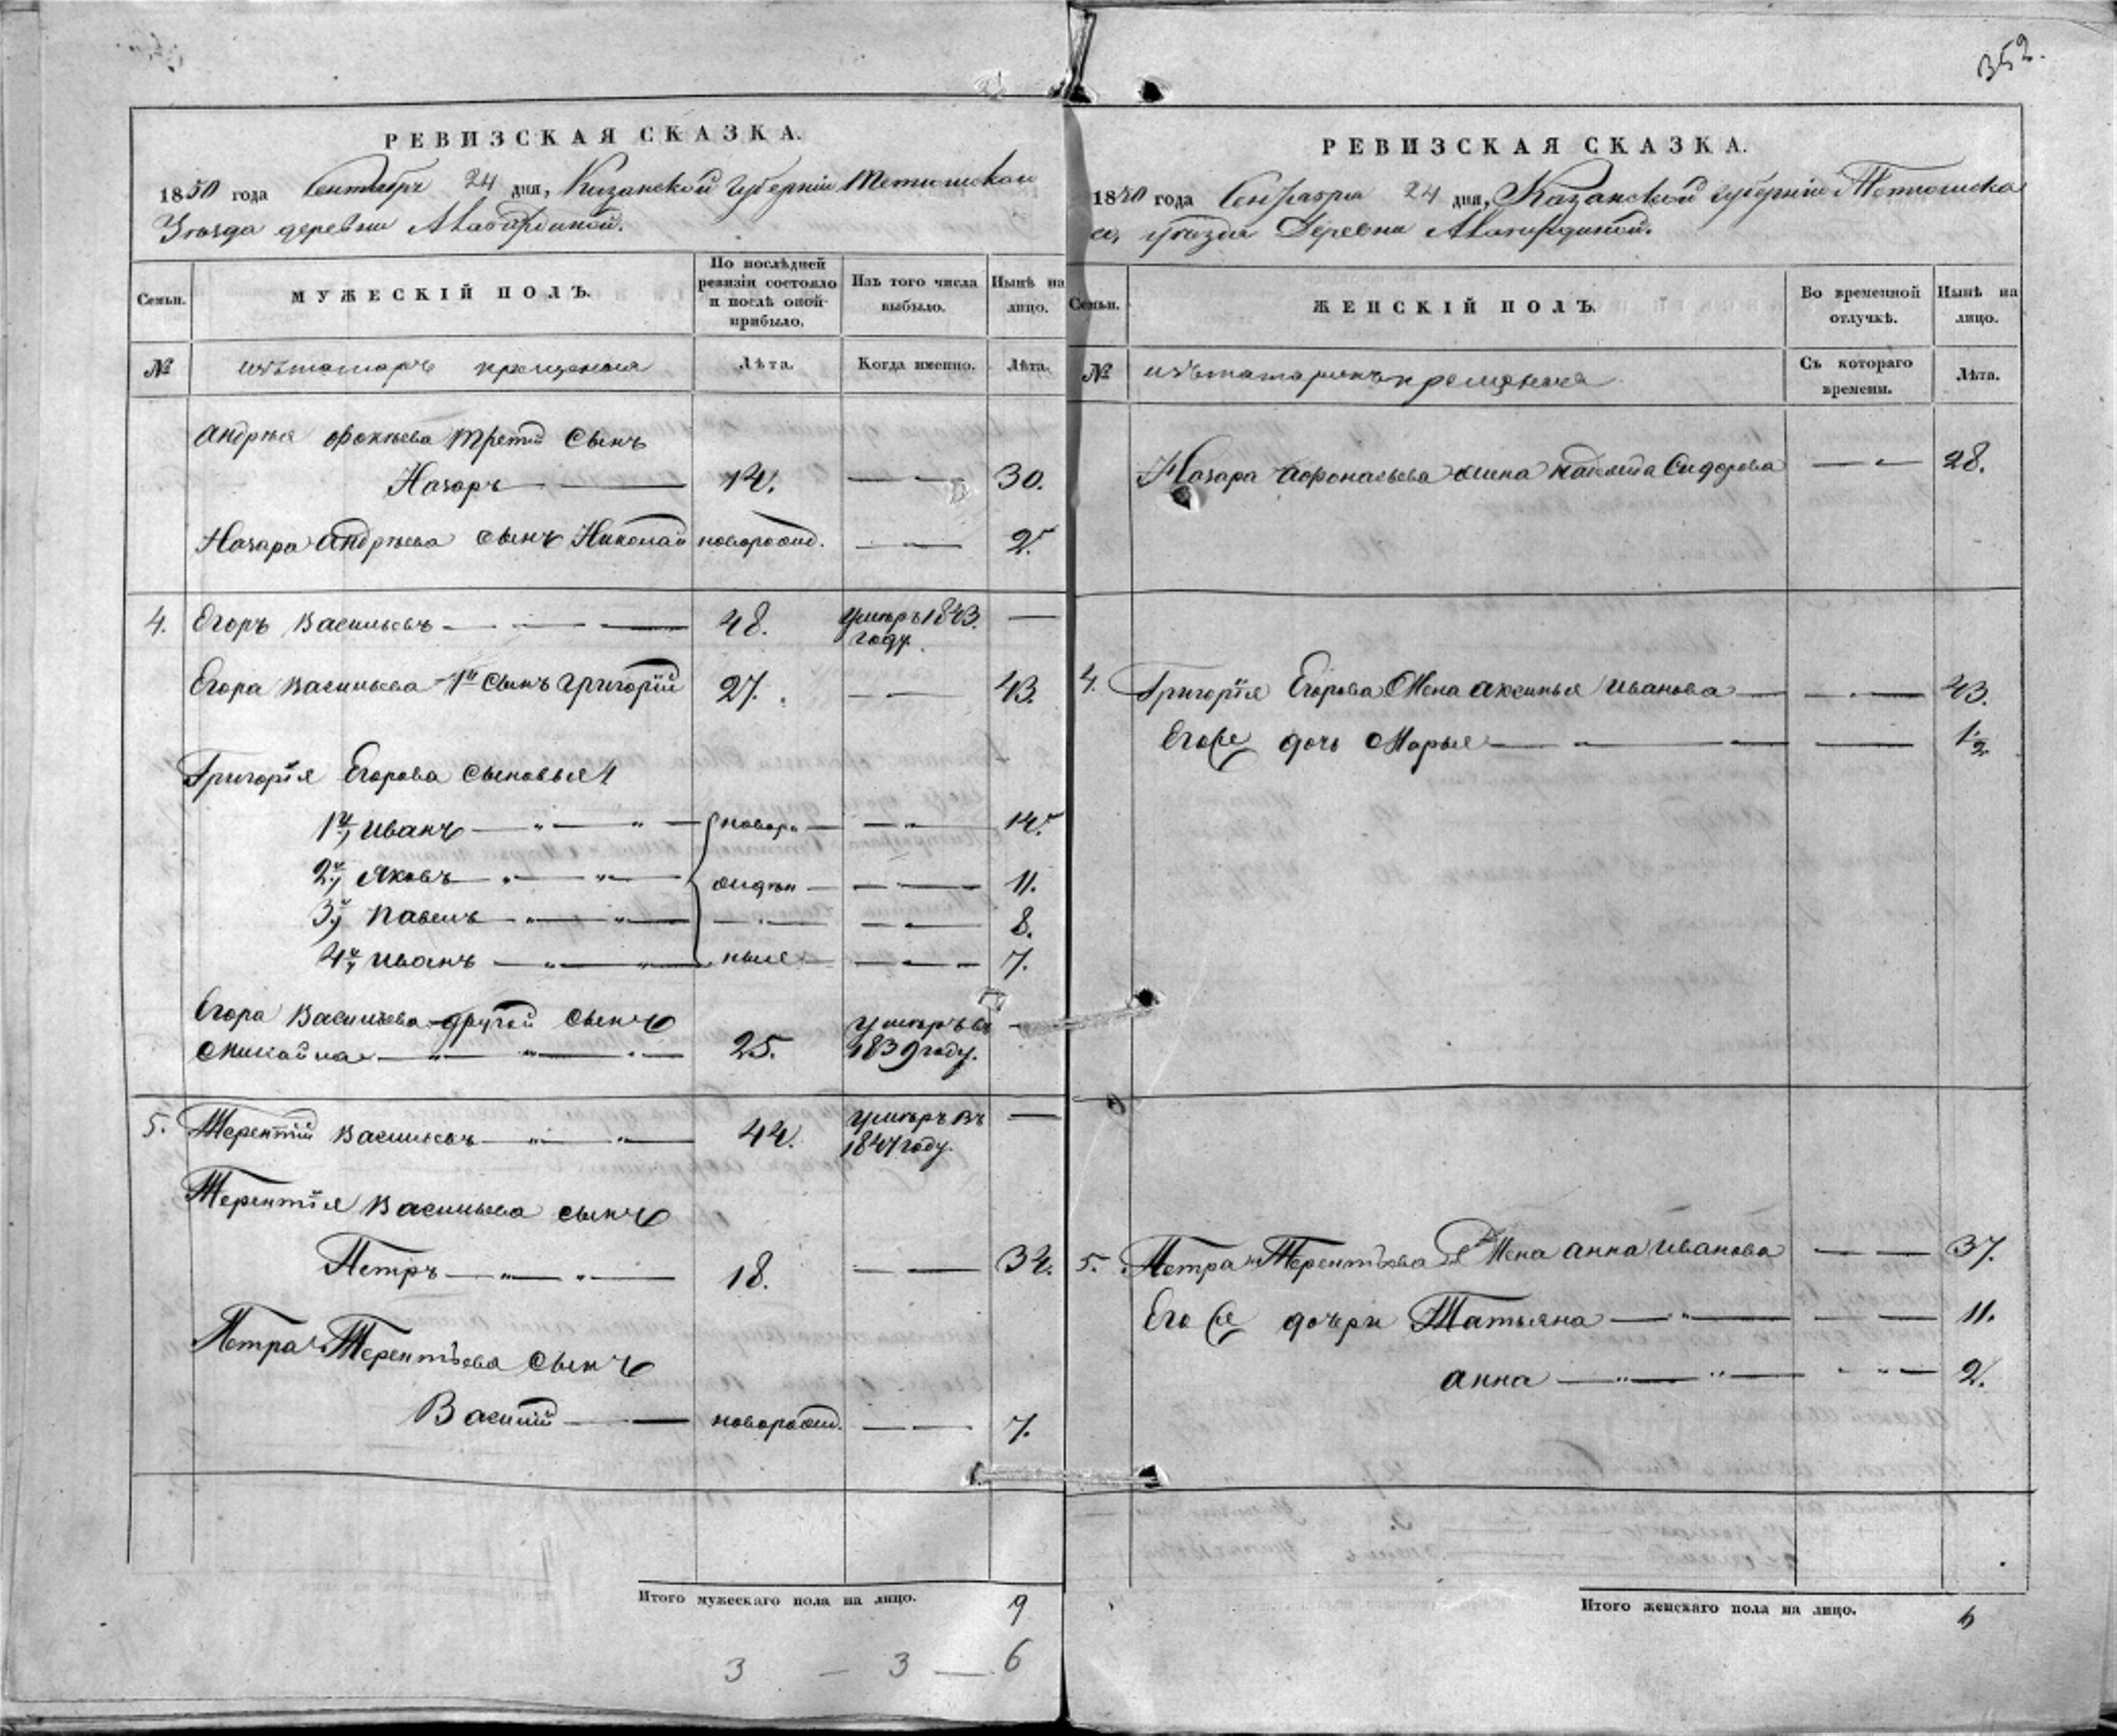 352.
РЕВИЗСКАЯ СКАЗКА.
1850 года Сентября 24 дня, Казанской губернiи Тетюшскои
Уѣзда деревни
Семьи.
МУЖЕСКІЙ ПОЛЪ.
По послѣдней ревизіи состояло и послѣ оной прибыло.
Изъ того числа выбыло.
Нынѣ на лицо.
№
изъ татаръ крещеныя
Лѣта.
Когда именно.
Лѣта.
Андрѣя третiй сынъ
Назаръ 14. 30.
Назара Андрѣева сынъ Николай новорожд. 2.
4. Егоръ Васильевъ 48. умѣръ 1843. году.
Егора Васильева 1й сынъ Григорiй 27. 43.
Григорiя Егорова сыновья
1й Иванъ новоро 14.
2й Яковъ ждѣн 11.
3й Павелъ 8.
4й Иванъ ные 7.
Егора Васильева другой сынъ
Михайла 25. умѣръ въ 1839 году.
5. Терентiй Васильевъ 44. умѣръ въ 1847 году.
Терентiя Васильева сынъ
Петръ 18. 34.
Петра Терентьева сынъ
Василiй новорожд. 7.
Итого мужескаго пола на лицо. 9
3 — 3 — 6
РЕВИЗСКАЯ СКАЗКА.
1850 года Сентября 24 дня, Казанской губернiи Тетюшска
го, уѣзда Деревни
Семьи.
ЖЕНСКІЙ ПОЛЪ.
Во временной отлучкѣ.
Нынѣ на лицо.
№
изъ татаръ крещеныя
Съ котораго времени.
Лѣта.
Назара жена Сидорова 28.
4. Григорiя Егорова Жена Аксинья Иванова 43.
Его же дочь Марья 1/2
5. Петра Терентьева Жена Анна Иванова 37.
Его же дочери Татьяна 11.
Анна 2.
Итого женскаго пола на лицо. 6